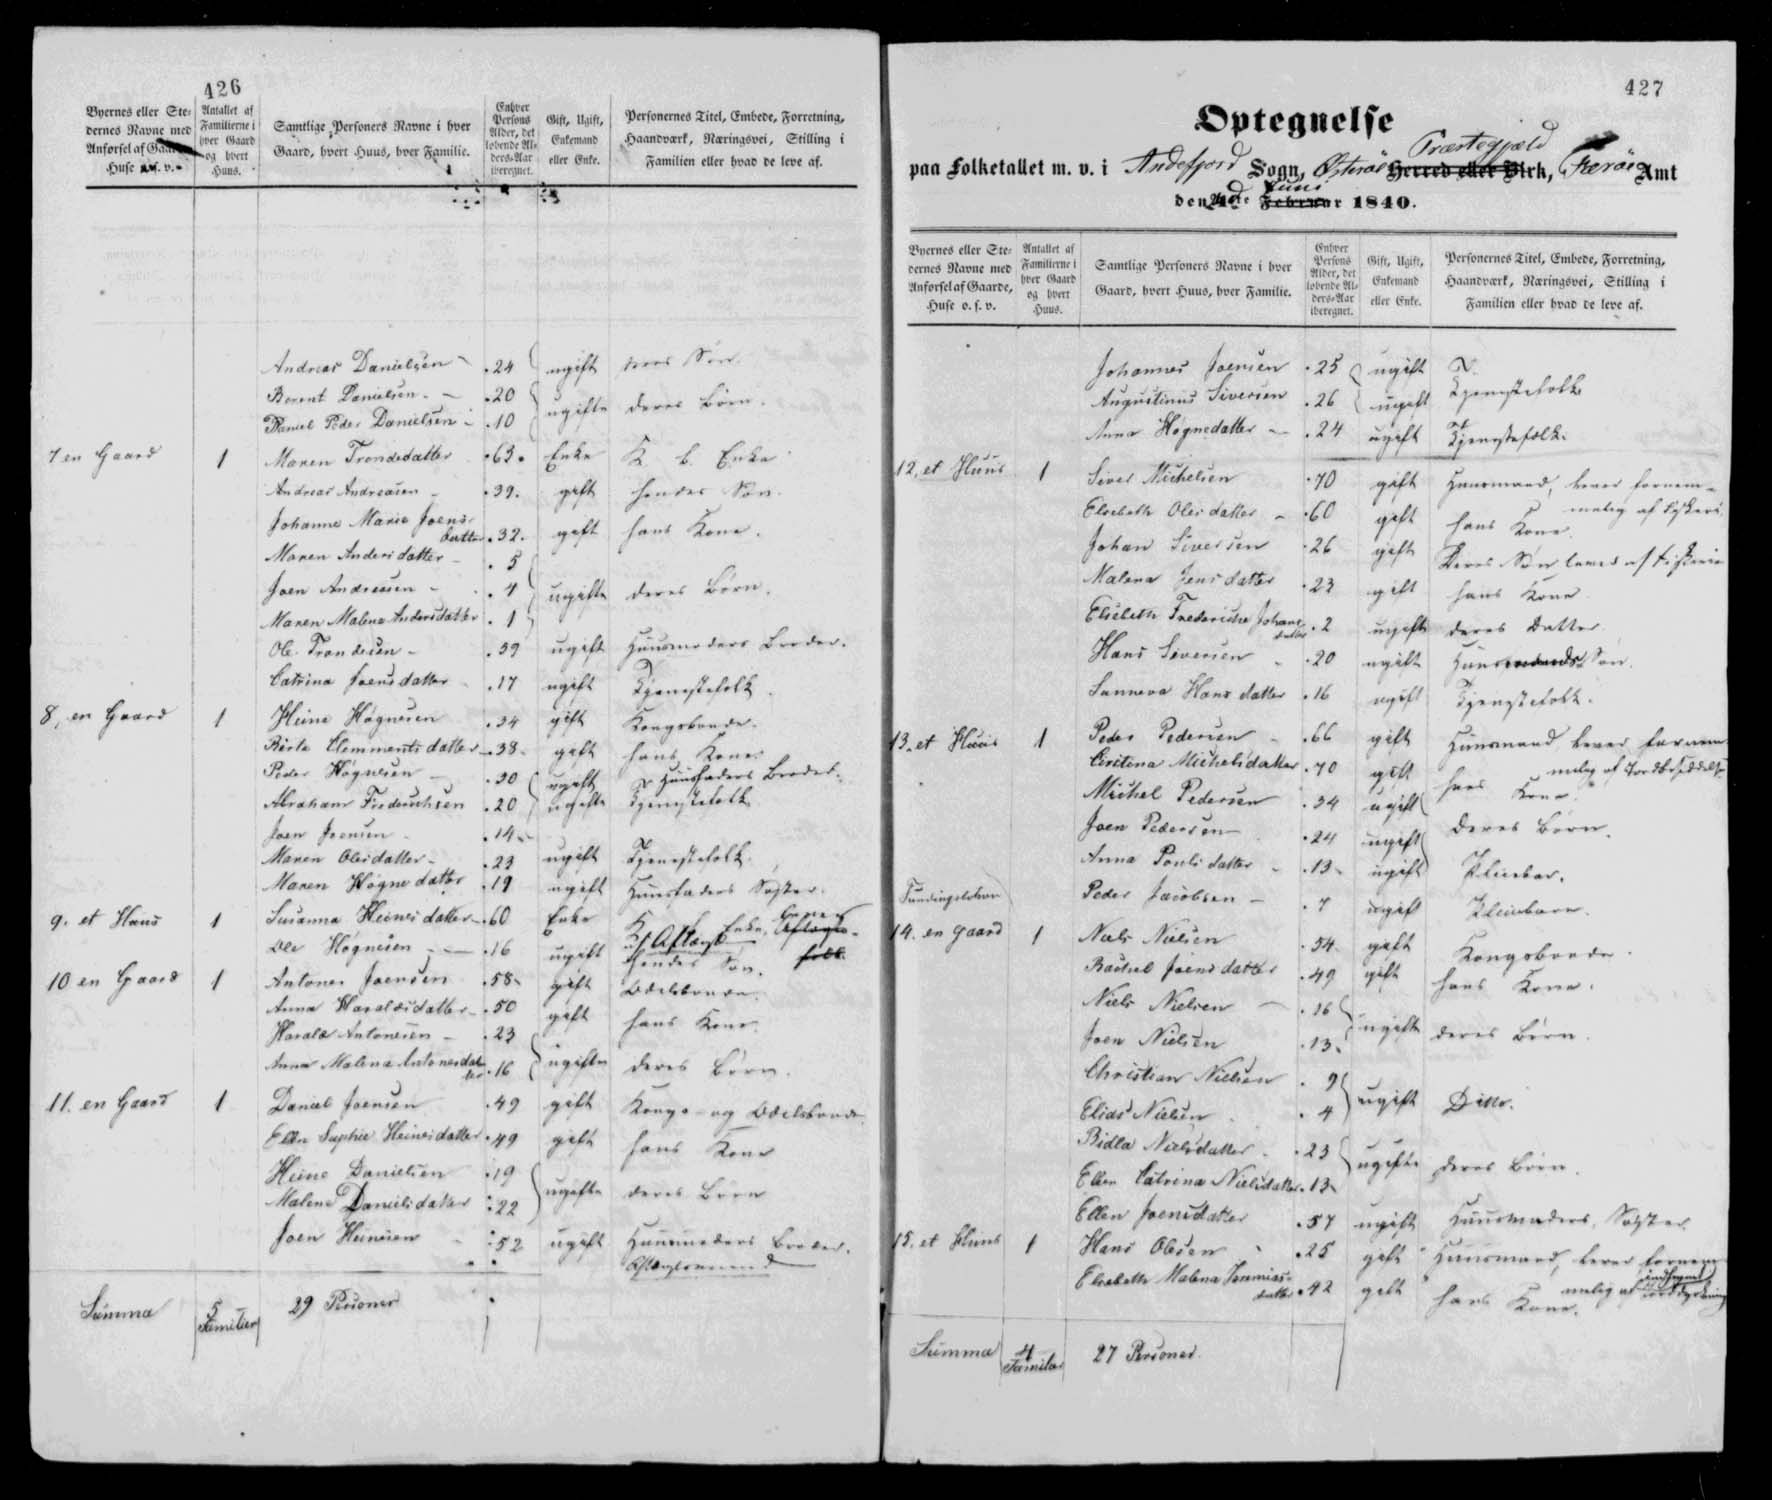 426
Byernes eller Ste-
dernes Navne med
Anførsel af Gaarde,
Huse o. s. v.
Antallet af
Familierne i
hver Gaard
og hvert
Huus.
Samtlige Personers Navne i hver
Gaard, hvert Huus, hver Familie.
Enhver
Persons
Alder, det
løbende Al-
ders-Aar
iberegnet.
Gift, Ugift,
Enkemand
eller Enke.
Personernes Titel, Embede, Forretning,
Haandværk, Næringsvei, Stilling i
Familien eller hvad de leve af.
Andreas Danielsen 24 ugift Søn.
Berent Danielsen 20
Daniel Peder Danielsen 10 ugifte deres Børn.
7 en Gaard 1 Maren Trondedatter 63 Enke K. b. Enke
Andreas Andreasen 39. gift hendes Søn.
Johanne Marie Joens-
datter 32. gift hans Kone.
Maren Andersdatter 5
Joen Andreasen 4 ugifte deres Børn.
Maren Malena Andersdatter 1
Ole Trondesen 39 ugift Huusmoders Broder.
Catrina Joensdatter 17 ugift Tjenestefolk.
8, en Gaard 1 Heine Høgnesen 34 gift Kongsbonde.
Birte Clementsdatter 38 gift hans Kone.
Peder Høgnesen 30 ugift Huusfaders Broder.
Abraham Friderichsen 20 ugifte Tjenestefolk
Joen Joensen 14
Maren Olesdatter 23 ugift Tjenestefolk.
Maren Høgnedatter 19 ugift Huusfaders Søster.
9. et Huus 1 Susanna Heinesdatter 60 Enke K. Enke, lever
af Aftægt
Ole Høgnesen 16 ugift hendes Søn.
10 en Gaard 1 Antones Joensen 58 gift Odelsbonde.
Anna Haraldsdatter 50 gift hans Kone.
Harald Antonesen 23
Anna Malena Antonesdat-
ter 16 ugifte deres Børn.
11. en Gaard 1 Daniel Joensen 49 gift Kongs- og Odelsbonde
Ellen Sophie Heinesdatter 49 gift hans Kone
Heine Danielsen 19
Malene Danielsdatter 22 ugifte deres Børn
Joen Heinesen 52 ugift Huusmoders Broder.
Aftægtsmand
Summa 5 Familier 29 Personer
427
Optegnelse
paa Folketallet m. v. i Andefjord Sogn, Østerøe Præstegjæld Herred eller Birk, Færøe Amt
den Juni Februar 1840.
Byernes eller Ste-
dernes Navne med
Anførsel af Gaarde,
Huse o. s. v.
Antallet af
Familierne i
hver Gaard
og hvert
Huus.
Samtlige Personers Navne i hver
Gaard, hvert Huus, hver Familie.
Enhver
Persons
Alder, det
løbende Al-
ders-Aar
iberegnet.
Gift, Ugift,
Enkemand
eller Enke.
Personernes Titel, Embede, Forretning,
Haandværk, Næringsvei, Stilling i
Familien eller hvad de leve af.
Johannes Joensen 25 ugift
Augustinus Siversen 26 ugift Tjenestefolk
Anna Høgnedatter 24 ugift Tjenestefolk.
12, et Huus 1 Siver Michelsen 70 gift Huusmand, lever fornem-
melig af Fiskeri.
Elsebeth Olesdatter 60 gift hans Kone.
Johan Siversen 26 gift Deres Søn lever af Fiskerie
Malena Jensdatter 23 gift hans Kone
Elsebeth Frederiche Johans-
datter 2 ugift deres Datter.
Hans Siversen 20 ugift Søn.
Sunneva Hansdatter 16 ugift Tjenestefolk.
13. et Huus 1 Peder Pedersen 66 gift Huusmand lever fornem-
melig af
Cirstena Michelsdatter 70 gift hans Kone.
Michel Pedersen 34 ugift
Joen Pedersen 24 ugift deres Børn.
Anna Poulsdatter 13 ugift Pleiebar.
Peder Jacobsen 7 ugift Pleiebarn.
14. en Gaard 1 Niels Nielsen 54 gift Kongsbonde.
Rachel Joensdatter 49 gift hans Kone.
Niels Nielsen 16
Joen Nielsen 13 ugift deres Børn.
Christian Nielsen 9
Elias Nielsen 4 ugift Ditto.
Bidla Nielsdatter 23
Ellen Catrina Nielsdatter 13 ugifte deres Børn.
Ellen Joensdatter 57 ugift Huusmoders Søster
15. et Huus 1 Hans Olesen 25 gift Huusmand, lever fornem-
melig af
Elsebeth Malena Jeremias-
datter 42 gift hans Kone.
Summa 4 Familier 27 Personer.